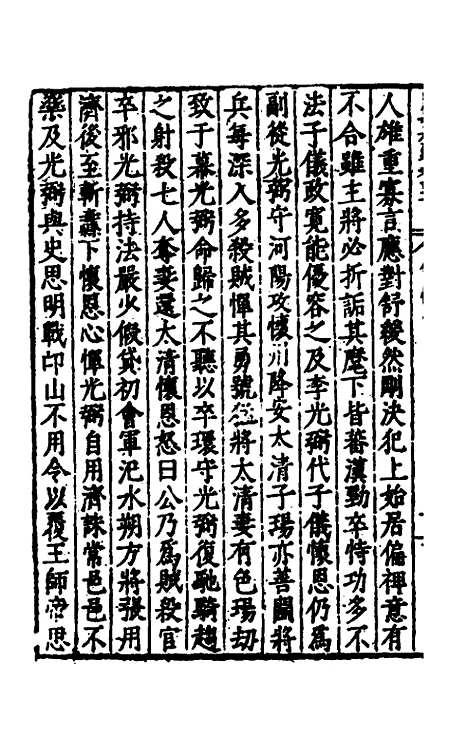 人雄重寡言應對舒緩然剛決犯上始居偏裨意有
不合雖主將必折詬其麾下皆蕃漢勁卒恃功多不
法子儀政寛能優容之及李光弼代子儀懷恩仍爲
副從光弼守河陽攻懷川降安太清子瑒亦善鬬將
兵每深入多殺賊憚其勇號 將太清妻有色瑒劫
致于幕光弼命歸之不聽以卒環守光弼復馳騎趨
之射殺七人奪妻還太清懷恩怒曰公乃爲賊殺官
卒邪光弼持法嚴少假貸初會軍汜水朔方將張用
濟後至斬纛下懷恩心憚光弼自用濟誅常邑邑不
樂及光弼與史思明戰邙山不用令以覆王師帝思